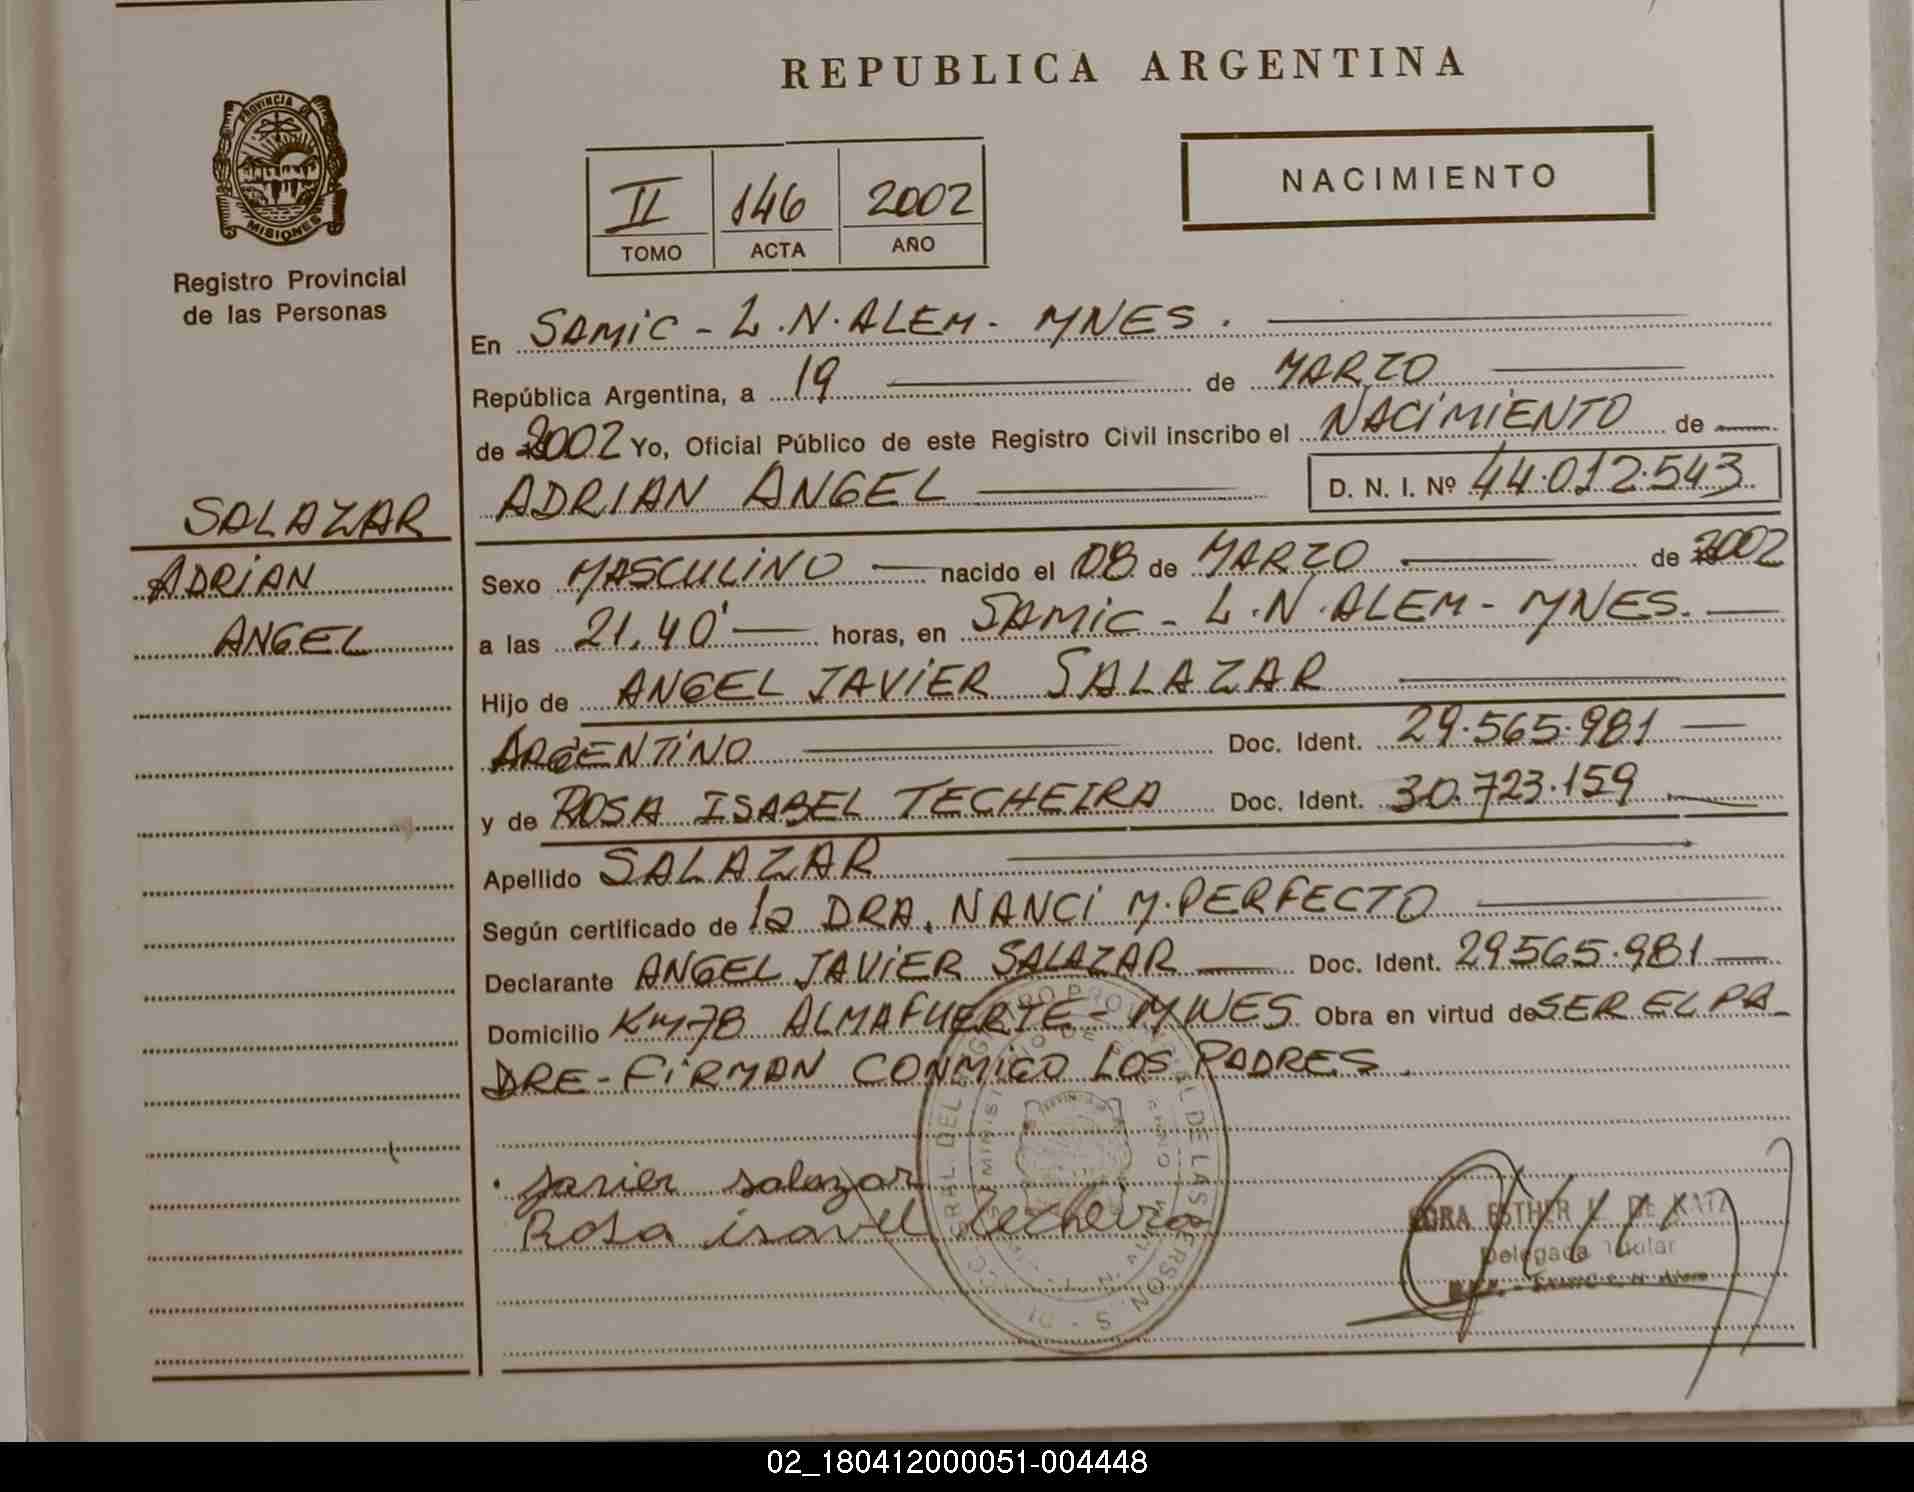 REPUBLICA ARGENTINA
PROVINCIA DE
MISIONES
Registro Provincial
de las Personas
II 146 2002
TOMO ACTA AÑO
NACIMIENTO
En SAMIC - L.N. ALEM - MNES.
República Argentina, a 19 de MARZO
de 2002 Yo, Oficial Público de este Registro Civil inscribo el NACIMIENTO de
ADRIAN ANGEL D. N. I. Nº 44.012.543
SALAZAR
ADRIAN
ANGEL
Sexo MASCULINO nacido el 08 de MARZO de 2002
a las 21,40' horas, en SAMIC - L.N. ALEM - MNES.
Hijo de ANGEL JAVIER SALAZAR
ARGENTINO Doc. Ident. 29.565.981
y de ROSA ISABEL TECHEIRA Doc. Ident. 30.723.159
Apellido SALAZAR
Según certificado de la DRA. NANCI M. PERFECTO
Declarante ANGEL JAVIER SALAZAR Doc. Ident. 29565.981
Domicilio Km78 ALMAFUERTE - MNES Obra en virtud de SER EL PA-
DRE - FIRMAN CONMIGO LOS PADRES.
Javier salazar
Rosa isavel Techeira
ESTHER L. DE KATZ
Delegada Titular
02_180412000051-004448